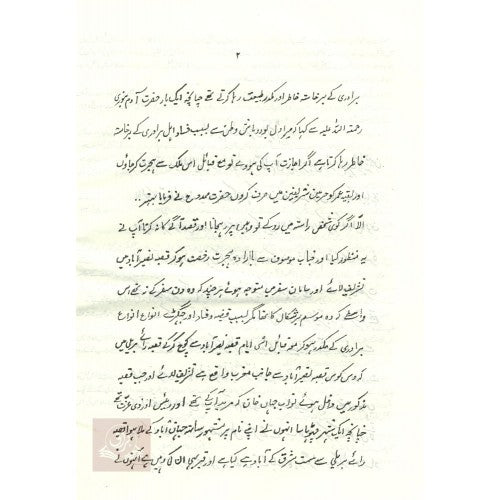 ۲
برادری کے برخاستہ خاطر اور مکدر طبیعت رہا کرتے تھے چنانچہ ایک بار حضرت آدم بنوری
رحمتہ اللہ علیہ سے کہا کہ میرا دل بود و باش وطن سے بسبب فساد اہل برادری کے برخاستہ
خاطر رہا کرتا ہے اگر اجازت آپ کی ہووے تو مع قبائل اس ملک سے ہجرت کر جاؤں
اور بقیہ عمر کو حرمین شریفین میں صرف کروں حضرت ممدوح نے فرمایا بہتر ..
الّا اگر کوئی شخص راستہ میں روکے تو وہیں پر رہجانا اور قصد آگے کا نہ کرنا آپ نے
یہ منظور کیا اور جناب موصوف سے بارادہ ہجرت رخصت ہو کر قصبہ نصیر آباد میں
تشریف لائے اور سامان سفر میں متوجہ ہوئے ہر چند کہ وہ دن سفر کے نہ تھے اس
واسطے کہ وہ موسم برشکال کا تھا مگر بسبب قرضہ و فساد اور جھگڑے انواع انواع
برادری کے مکدر ہو کر معہ قبائل اسی ایام قصبہ نصیر آباد سے کوچ کر کے قصبہ رائے بریلی میں
کہ دس کوس قصبہ نصیر آباد سے جانب مغرب واقع ہے تشریف لائے اور جب قصبہ
مذکور میں داخل ہوئے نواب جہاں خان کہ مرید آپکے تھے اور رئیس اور ذی عزت تھے
چنانچہ ایک شہر چھوٹا سا انہوں نے اپنے نام پر مشہور ساتھ جہان آباد کے ملا ہوا قصبہ
رائے بریلی سے سمت مشرق کے آباد ہے کیا ہے اور قبر بھی ان کی وہیں ہے انہوں نے